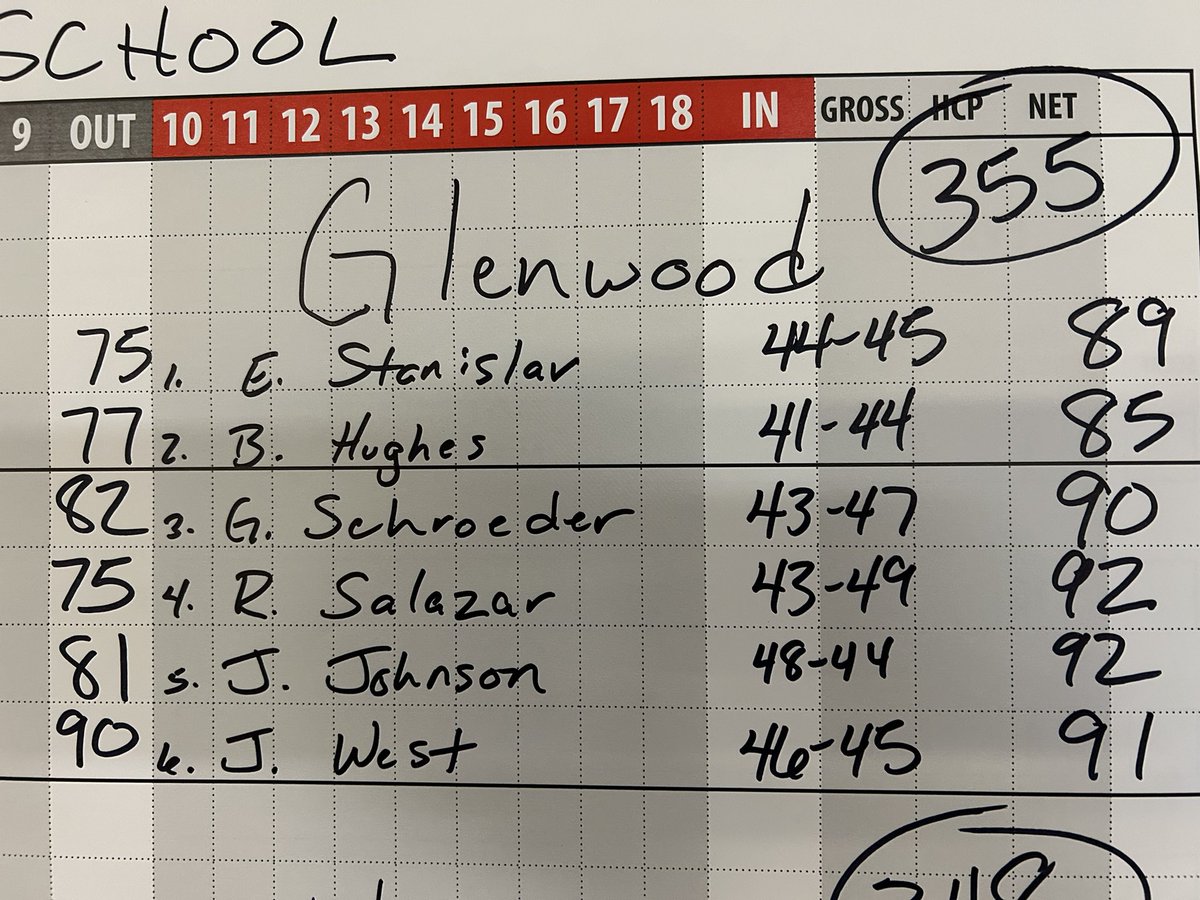 SCHOOL
9 OUT 10 11 12 13 14 15 16 17 18 IN GROSS HCP NET
355
Glenwood
75 1. E. Stanislav 44-45 89
77 2. B. Hughes 41-44 85
82 3. G. Schroeder 43-47 90
75 4. R. Salazar 43-49 92
81 5. J. Johnson 48-44 92
90 6. J. West 46-45 91